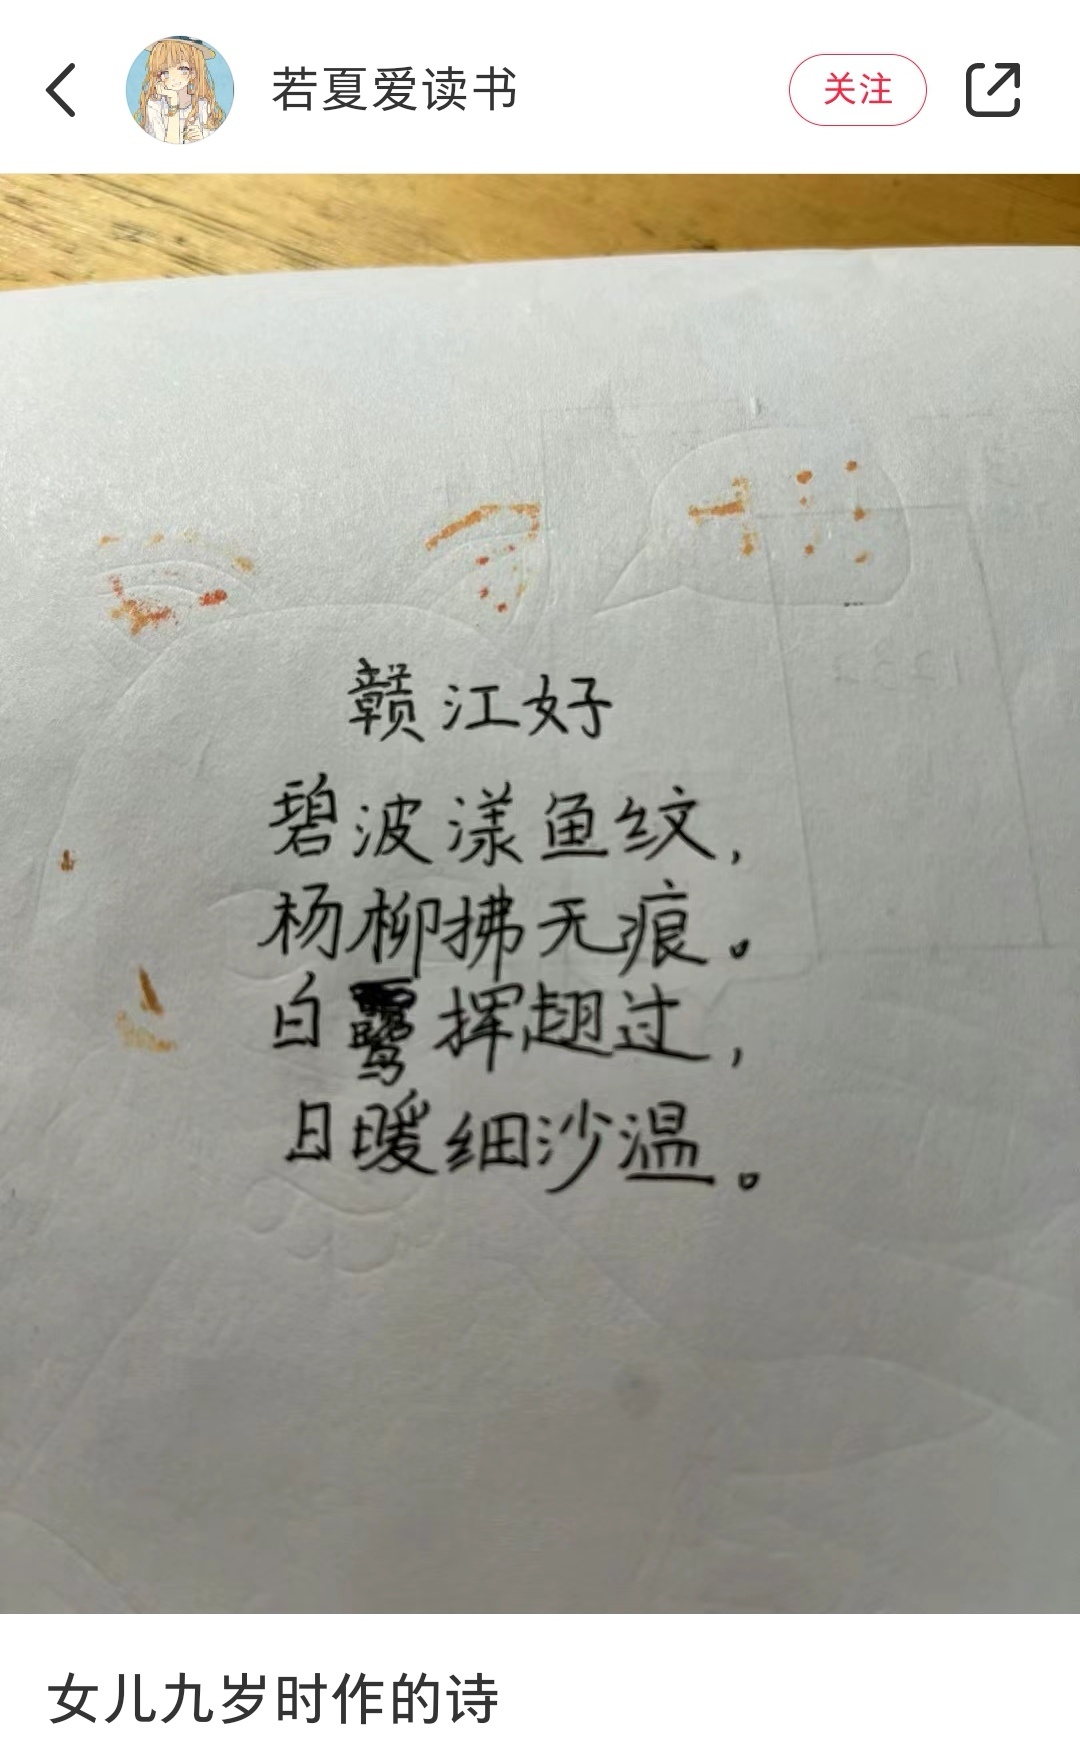 若夏爱读书
关注
赣江好
碧波漾鱼纹，
杨柳拂无痕。
白鹭挥翅过，
日暖细沙温。
女儿九岁时作的诗